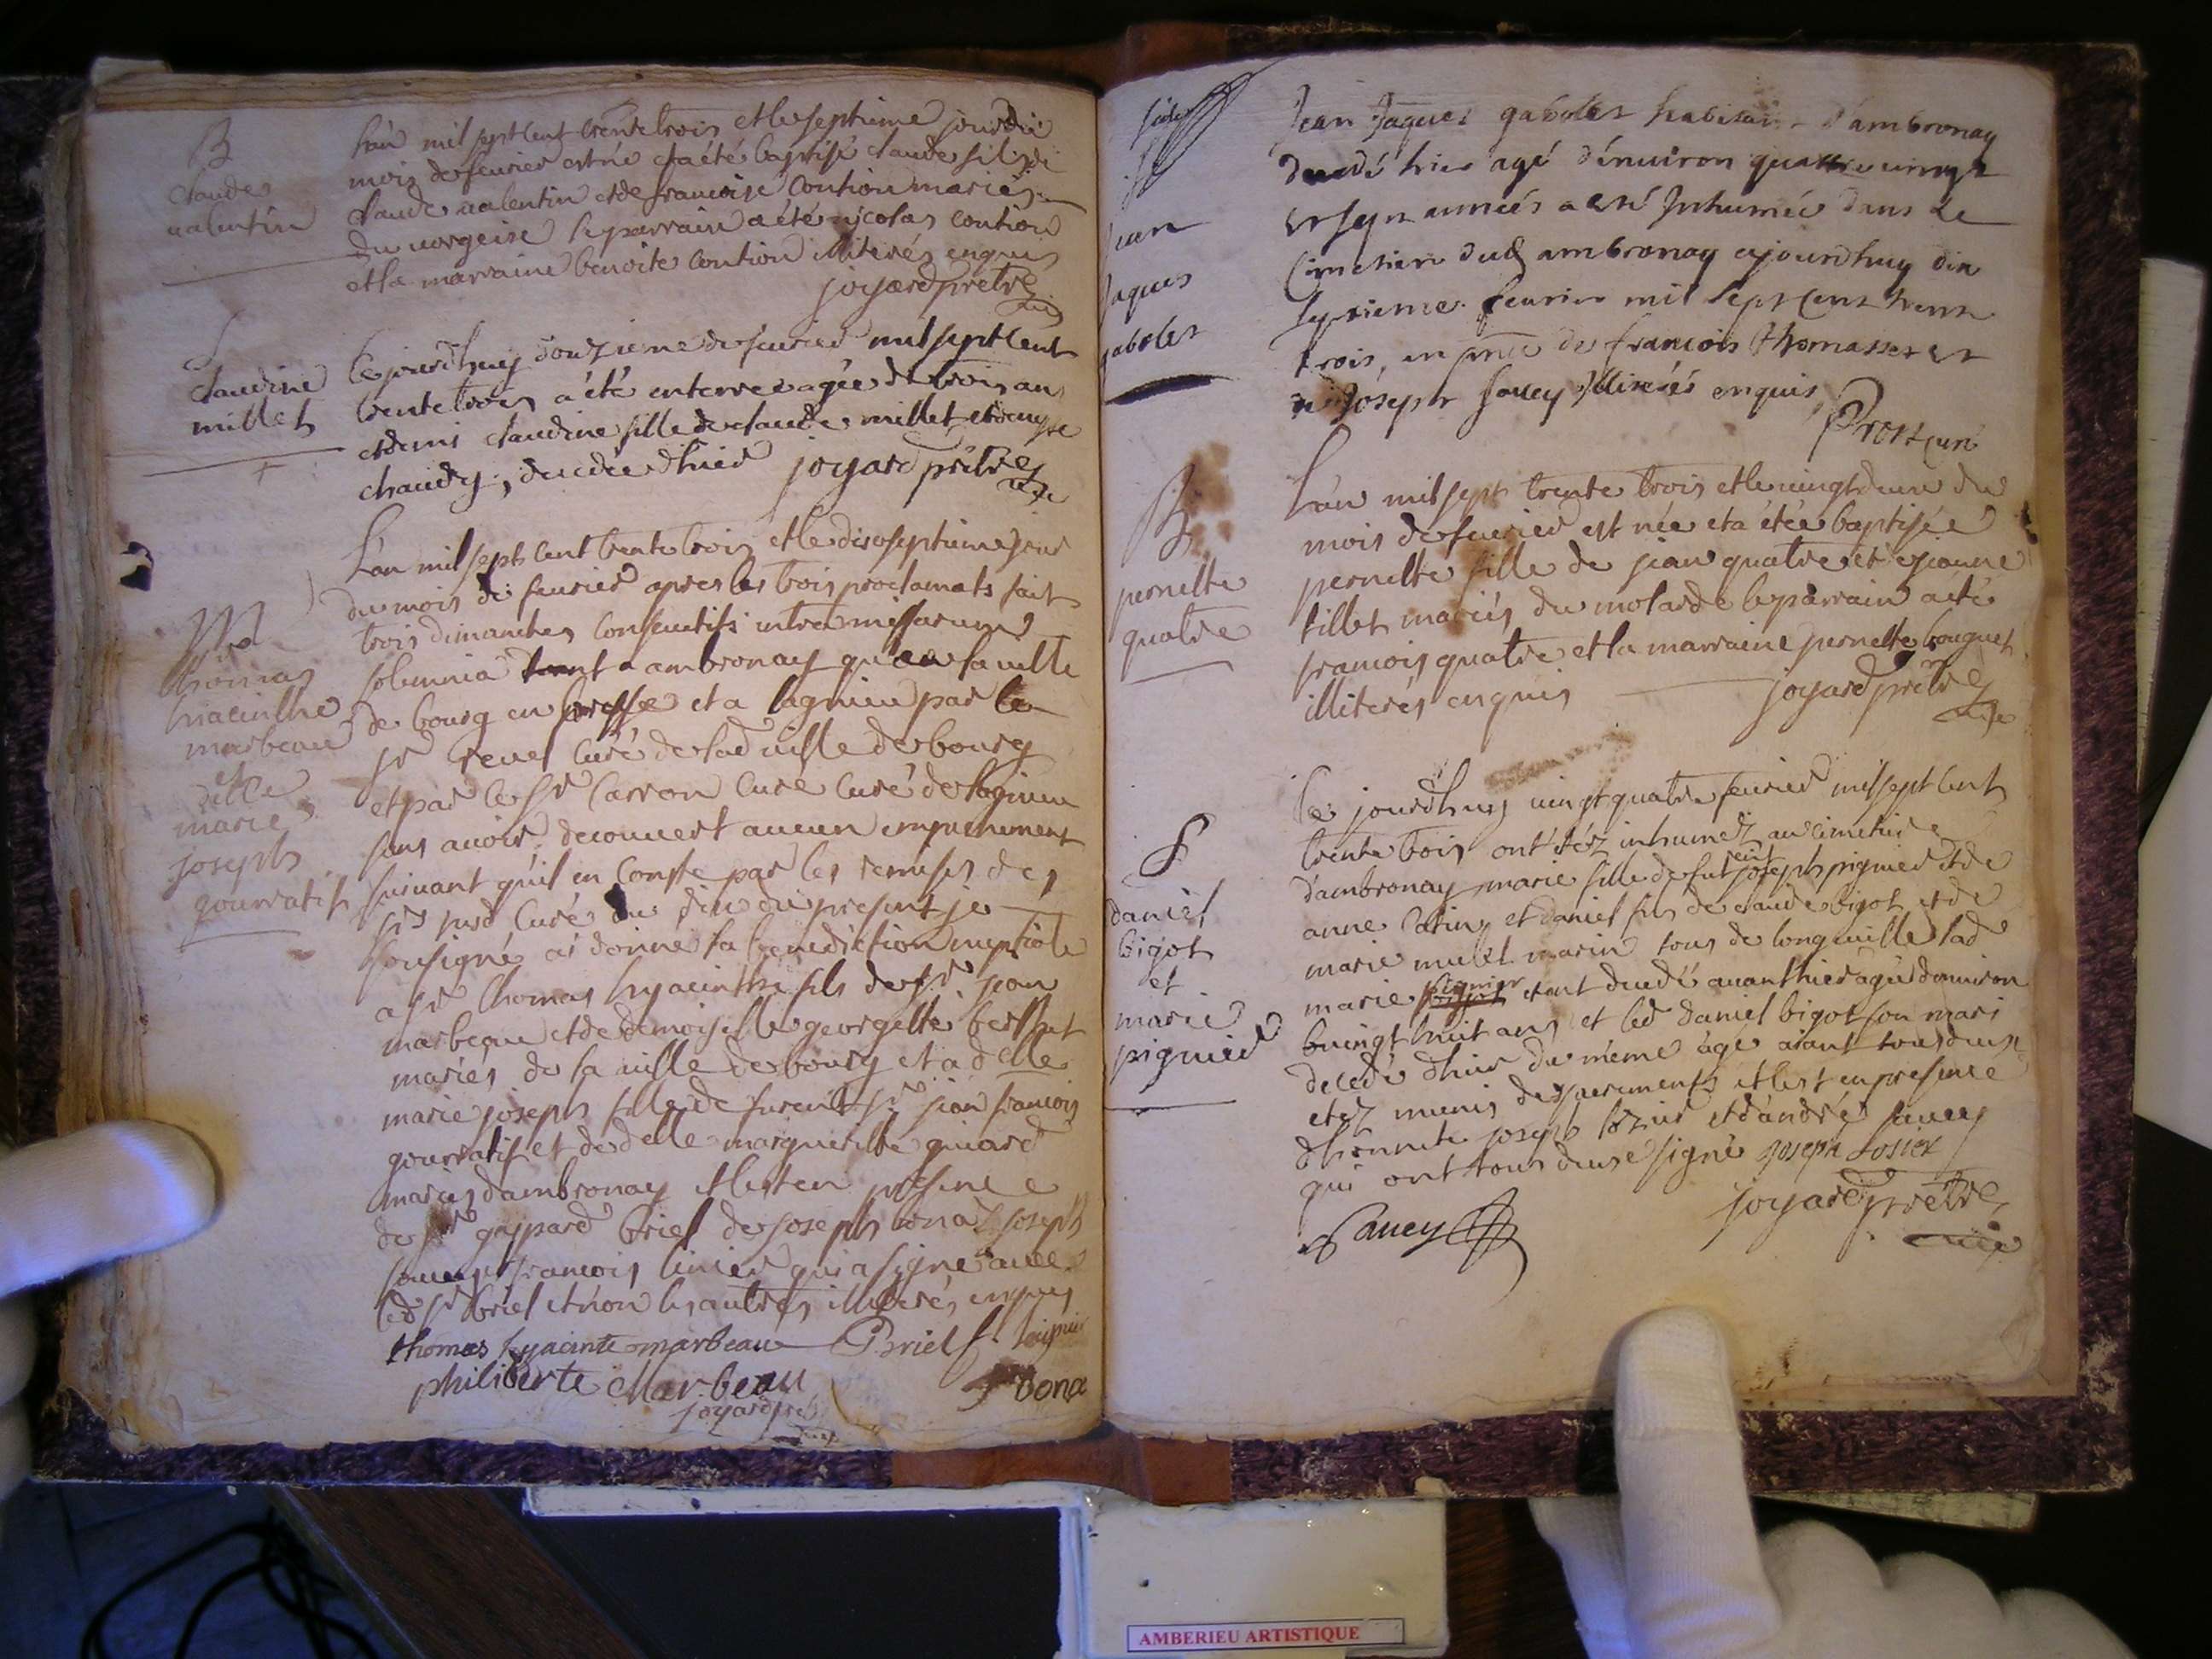 B
claude
valentin
L'an mil sept cent trente trois et le septieme jour du
mois de feurier est né et a été baptisé claude fils de
claude valentin et de francoise Contion mariés
du vorgeise le parrain a été nicolas contion
et la marraine benoite contion illiterés enquis
joyard prêtre
S
claudine
millet
Ce jourdhuy douzieme de feurier mil sept cent
trente trois a été enterree agée de trois ans
et demi claudine fille de claude millet et
chaudy, decedée d'hier joyard prêtre
M
thomas
hiacinthe
marbeau
et
delle
marie
joseph
gourratif
L'an mil sept cent trente trois et le dixseptieme jour
du mois de feurier apres les trois proclamats fait
trois dimanches consecutifs intra missarum
solemnia tant a ambronay qu'en la ville
de bourg en bresse et a lagnieu par le
sr revel curé de lad ville de bourg
et par le sr Carron curé curé de lagnieu
sans avoir decouvert aucun empechement
suivant qu'il en Conste par les remises des
srs susd Curés du dix du present je
sousigné ai donné la benediction nuptiale
a sr thomas hyacinthe fils de sr jean
marbeau et de demoiselle georgette
mariés de la ville de bourg et a delle
marie joseph fille de sr jean francois
gourratif et de delle margueritte guiard
mariés d'ambronay et en presence
de sr gaspard briel de joseph bona joseph
sauey francois qui a signé avec
led sr briel et non les autres illiterés enquis
thomas hyacinte marbeau Briel f.
philiberte Marbeau J Bona
joyard
S
jean
jaques
gabolet
Jean Jaques gabolet habitant d'ambronay
decedé hier agé d'enuiron quattre uingt
et sept années a esté Inhumée dans le
Cimetiere dud ambronay ajourdhuy dix
septieme feurier mil sept cent trente
trois, en pnce de francois thomasset et
de Joseph sauey Illiterés enquis
Prost curé
B
pernette
quatre
L'an mil sept trente trois et le uingt deux du
mois de feurier est née et a étée baptisée
pernette fille de jean quatre et jeanne
tillet mariés du molard le parrain a été
francois quatre et la marraine pernette bouguet
illiterés enquis joyard prêtre
S
daniel
bigot
et
marie
pignier
Ce jourdhuy uingt quatre feurier mil sept cent
trente trois ont étéz inhumez au cimetiere
d'ambronay marie fille de fut joseph pignier et de
anne Catin et daniel fils de claude bigot et de
marie marin tous de longeuille lad
marie pignier etant decedé auanthier agée d'enuiron
huit ans et led daniel bigot son mari
decedé d'hier du même âge aiant tous deux
etez munis des sacrements et en presence
d'honnete joseph lozier et d'andré sauey
qui ont tous deux signé joseph Losier
Sauey joyard prêtre
AMBERIEU ARTISTIQUE